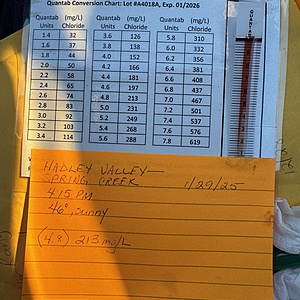 Quantab Conversion Chart: Lot #A4018A, Exp. 01/2026
Quantab (mg/L) Quantab (mg/L) Quantab (mg/L)
Units Chloride Units Chloride Units Chloride
1.4 32 3.6 126 5.8 310
1.6 37 3.8 138 6.0 332
1.8 44 4.0 152 6.2 356
2.0 50 4.2 166 6.4 381
2.2 58 4.4 181 6.6 408
2.4 65 4.6 197 6.8 437
2.6 74 4.8 213 7.0 467
2.8 83 5.0 231 7.2 501
3.0 92 5.2 249 7.4 537
3.2 103 5.4 268 7.6 576
3.4 114 5.6 288 7.8 619
QUANTAB
HADLEY VALLEY—
SPRING CREEK 1/29/25
415 PM
46°, sunny
(4.8) 213 mg/L